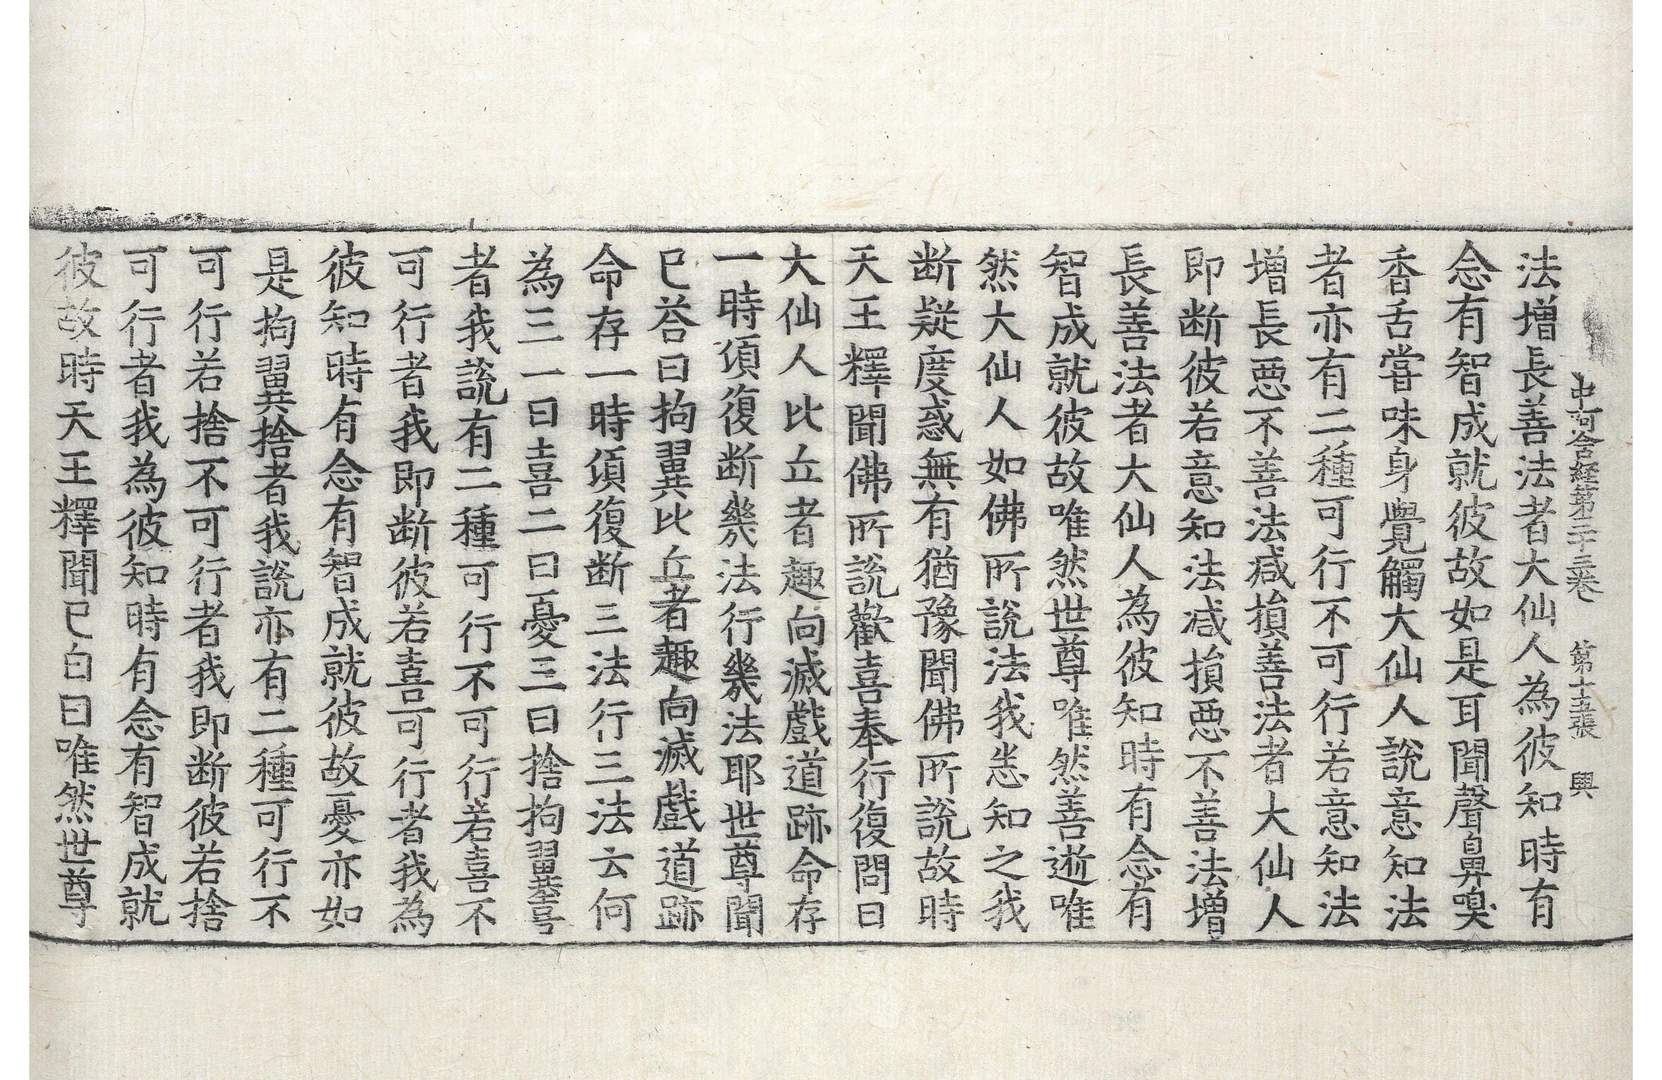 中阿含經第三十三卷　第十五張　興
法增長善法者大仙人為彼知時有
念有智成就彼故如是耳聞聲鼻嗅
香舌嘗味身覺觸大仙人說意知法
者亦有二種可行不可行若意知法
增長惡不善法減損善法者大仙人
即断彼若意知法减損惡不善法增
長善法者大仙人為彼知時有念有
智成就彼故唯然世尊唯然善逝唯
然大仙人如佛所說說法我悉知之我
断疑度惑無有猶豫聞佛所說故時
天王釋聞佛所說歡喜奉行復問曰
大仙人比丘者趣向滅戲道跡命存
一時頃復断幾法行幾法耶世尊聞
已荅曰拘翼比丘者趣向滅戲道跡
命存一時頃復断三法行三法云何
為三一曰喜二曰憂三曰捨拘翼喜
者我說有二種可行不可行若喜不
可行者我即断彼若喜可行者我為
彼知時有念有智成就彼故憂亦如
是拘翼捨者我說亦有二種可行不
可行若捨不可行者我即断彼若捨
可行者我為彼知時有念有智成就
彼故時天王釋聞已白曰唯然世尊